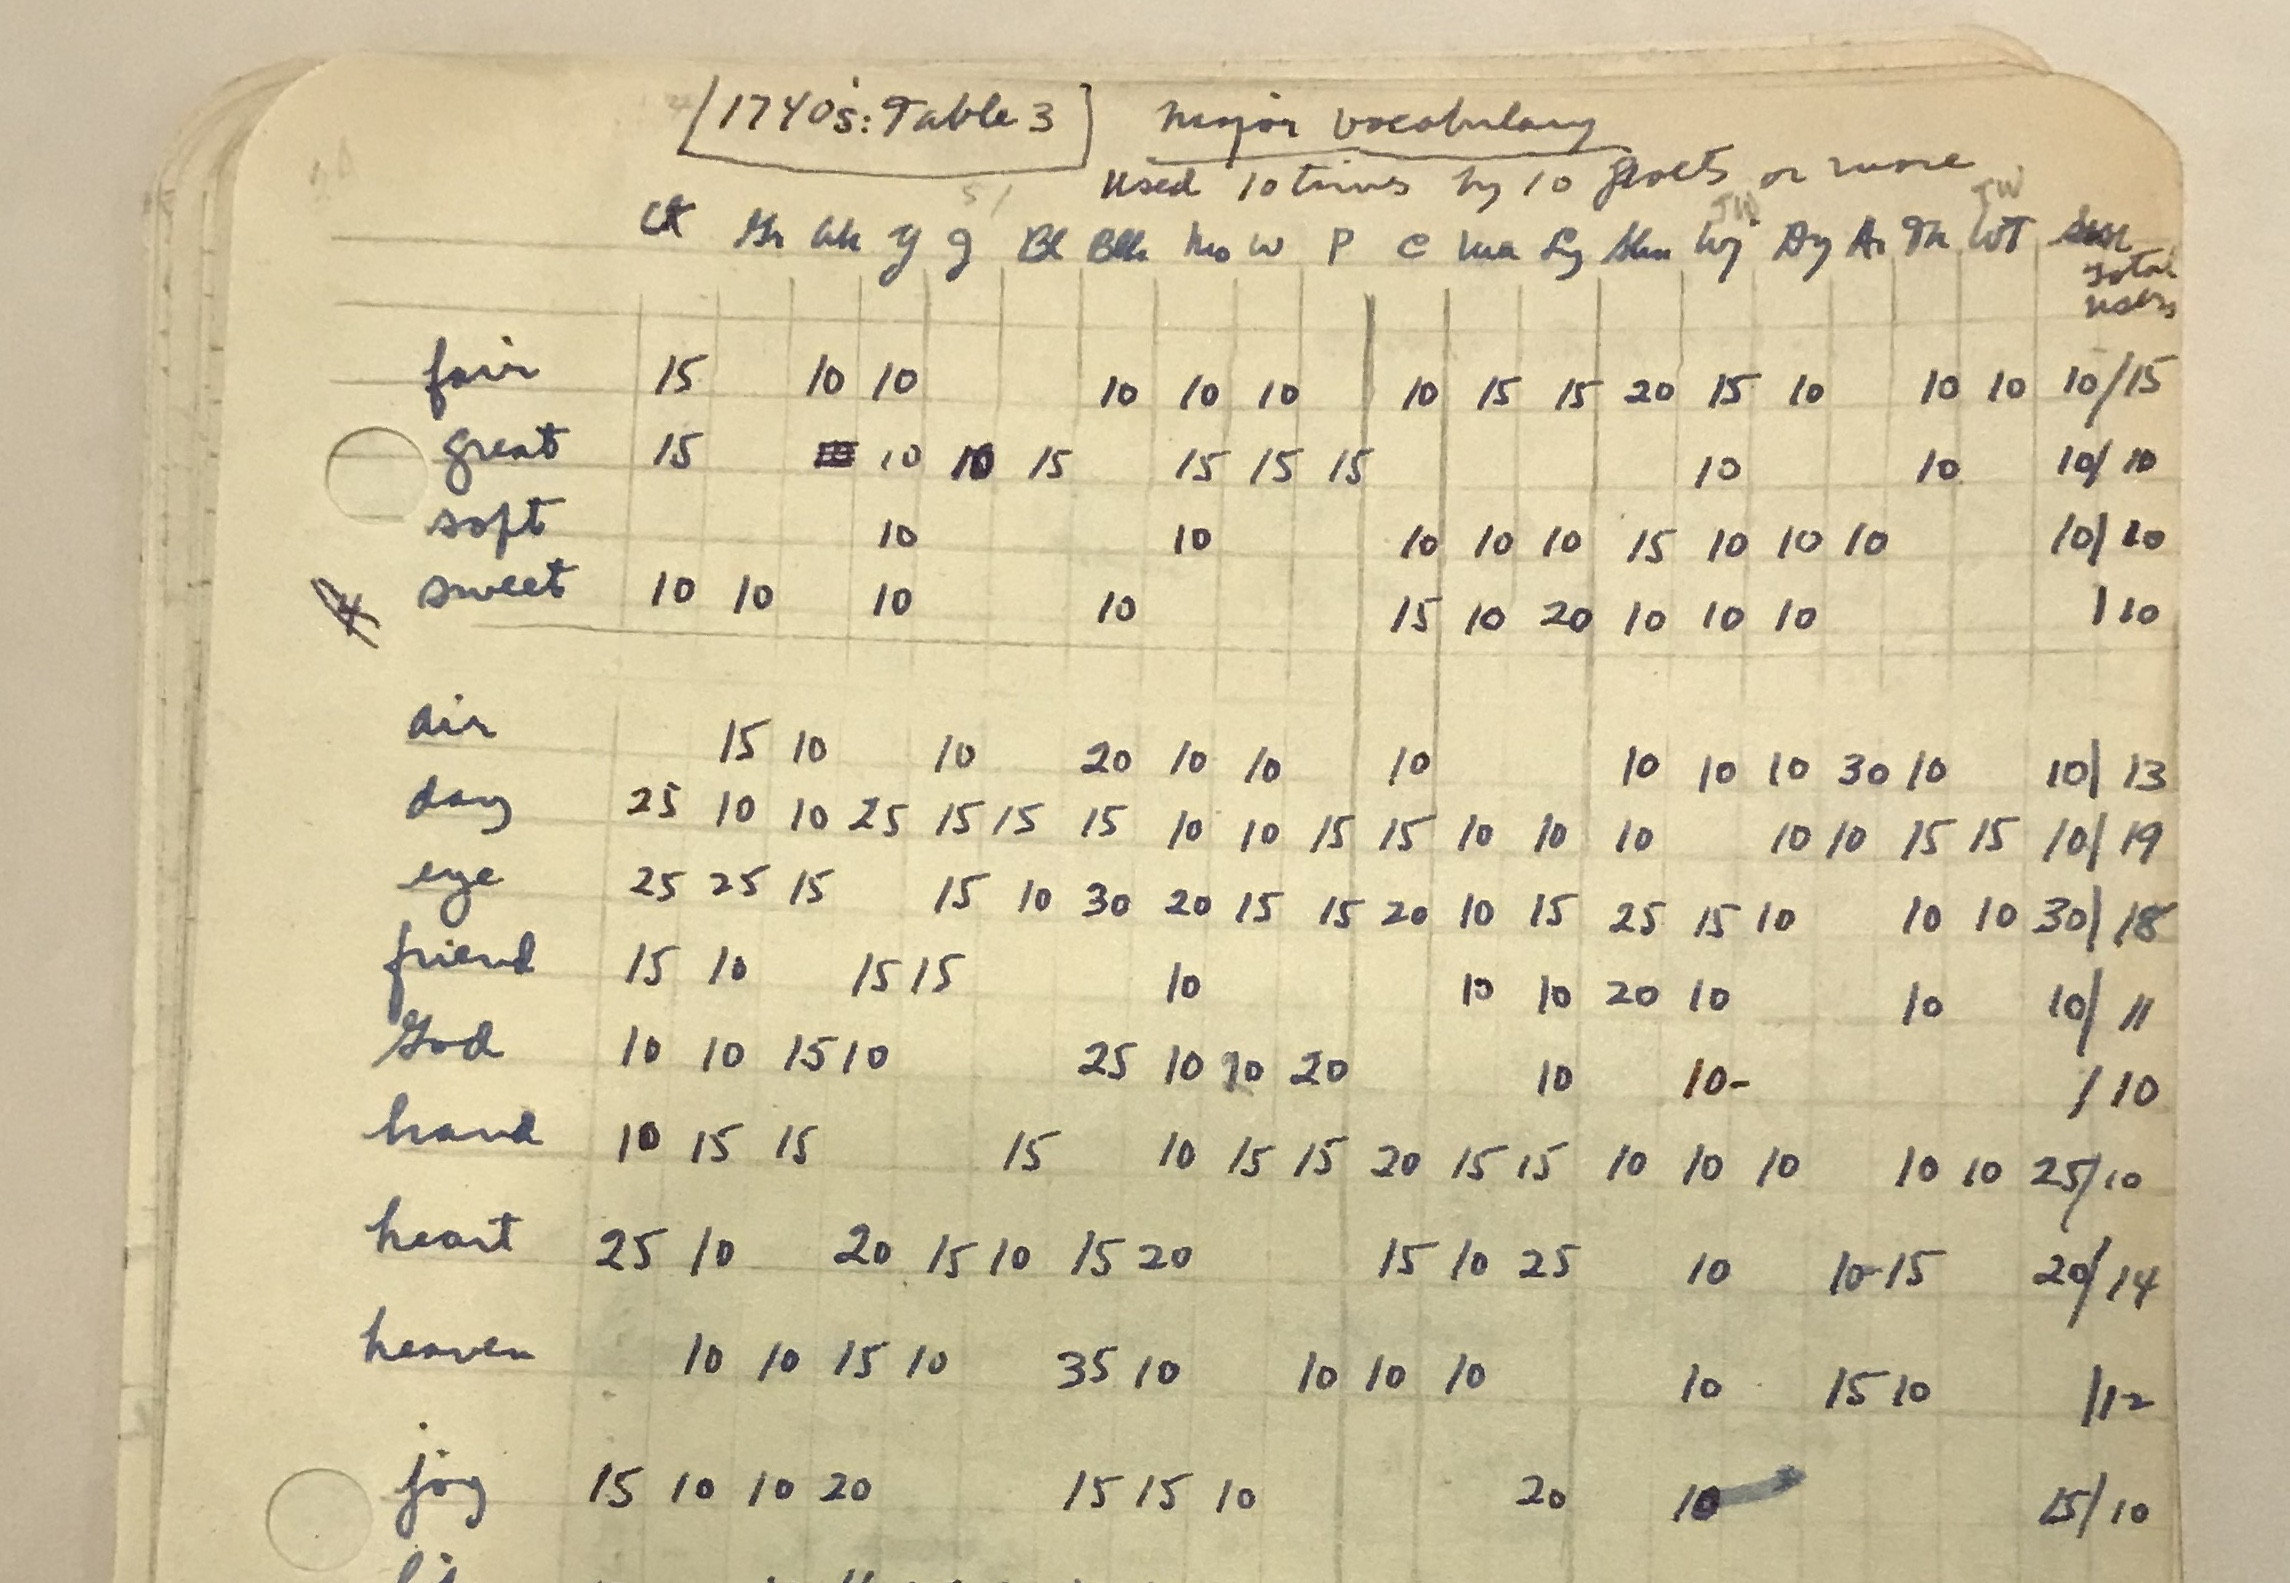 [1740's: Table 3] Major Vocabulary
used 10 times by 10 poets or more
51 JW JW
Gr Ak Y g Bl Blk Mo W P C Wa Ly Shn Wj Dy Ar Th WT
total
users
fair 15 10 10 10 10 10 10 15 15 20 15 10 10 10 10/15
great 15 10 10 15 15 15 15 10 10 10/10
soft 10 10 10 10 10 15 10 10 10 10/10
sweet 10 10 10 10 15 10 20 10 10 10 /10
air 15 10 10 20 10 10 10 10 10 10 30 10 10/13
day 25 10 10 25 15 15 15 10 10 15 15 10 10 10 10 10 15 15 10/19
eye 25 25 15 15 10 30 20 15 15 20 10 15 25 15 10 10 10 30/18
friend 15 10 15 15 10 10 10 20 10 10 10/11
God 10 10 15 10 25 10 10 20 10 10- /10
hand 10 15 15 15 10 15 15 20 15 15 10 10 10 10 10 25/10
heart 25 10 20 15 10 15 20 15 10 25 10 10-15 20/14
heaven 10 10 15 10 35 10 10 10 10 10 15 10 /12
joy 15 10 10 20 15 15 10 20 10 15/10